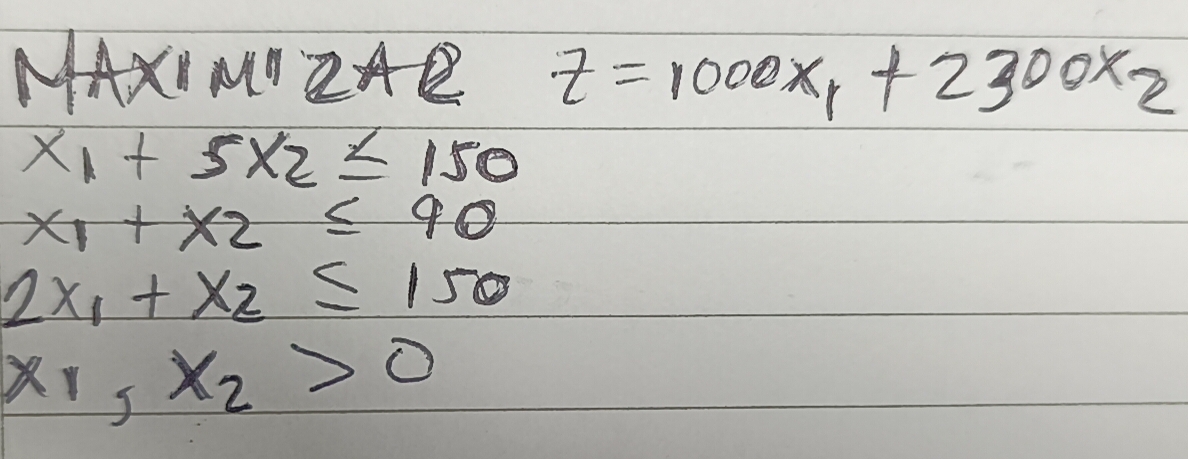 MAXIMIZAR Z = 1000x₁ + 2300x₂
x₁ + 5x₂ ≤ 150
x₁ + x₂ ≤ 90
2x₁ + x₂ ≤ 150
x₁, x₂ > 0